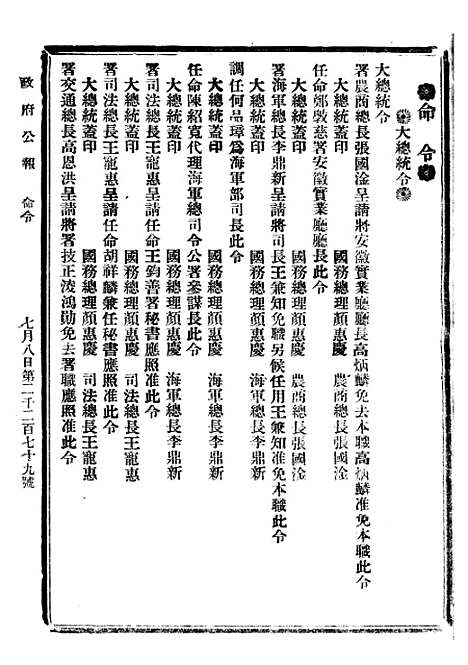 命令
大總統令
大總統令
署農商總長張國淦呈請將安徽實業廳廳長高炳麟免去本職高炳麟准免本職此令
大總統蓋印 國務總理顏惠慶 農商總長張國淦
任命鄭敦慈署安徽實業廳廳長此令
大總統蓋印 國務總理顏惠慶 農商總長張國淦
署海軍總長李鼎新呈請將司長王兼知免職另候任用王兼知准免本職此令
大總統蓋印 國務總理顏惠慶 海軍總長李鼎新
調任何品璋爲海軍部司長此令
大總統蓋印 國務總理顏惠慶 海軍總長李鼎新
任命陳紹寬代理海軍總司令公署參謀長此令
大總統蓋印 國務總理顏惠慶 海軍總長李鼎新
署司法總長王寵惠呈請任命王鈞善署秘書應照准此令
大總統蓋印 國務總理顏惠慶 司法總長王寵惠
署司法總長王寵惠呈請任命胡祥麟兼任秘書應照准此令
大總統蓋印 國務總理顏惠慶 司法總長王寵惠
署交通總長高恩洪呈請將署技正淩鴻勛免去署職應照准此令
政府公報 命令 七月八日第二千二百七十九號